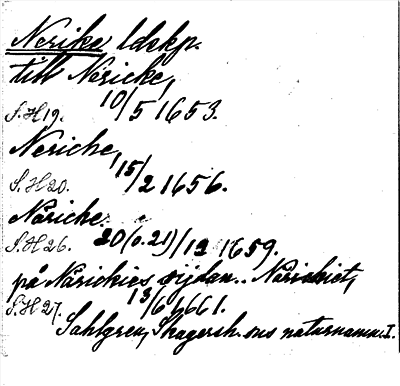 Nerike ldskp.
till Näricke,
S.H 19. 10/5 1653.
Neriche,
S.H 20. 15/2 1656.
Näricke
S.H 26. 20 (o. 21)/12 1659.
på Närickies sijdan.. Närickiet,
S.H 27. 13/6 1661.
Sahlgren, Skagersh. sns naturnamn. I.